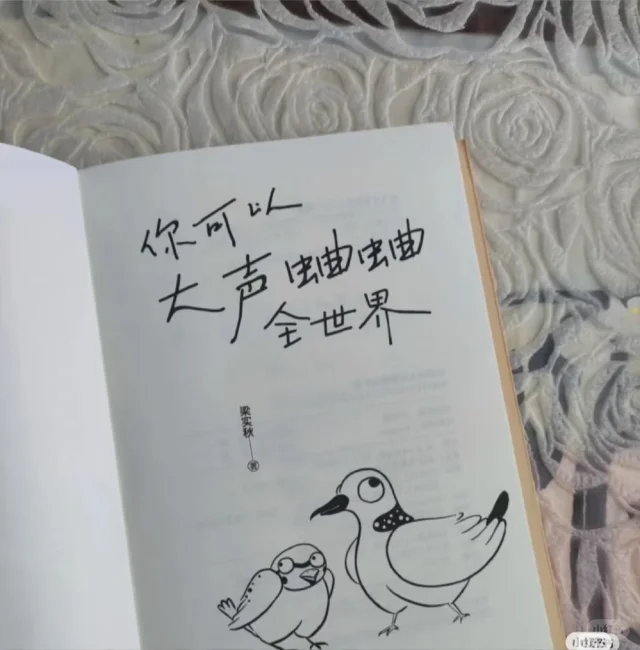 你可以
大声蛐蛐
全世界
梁实秋——著
小红书